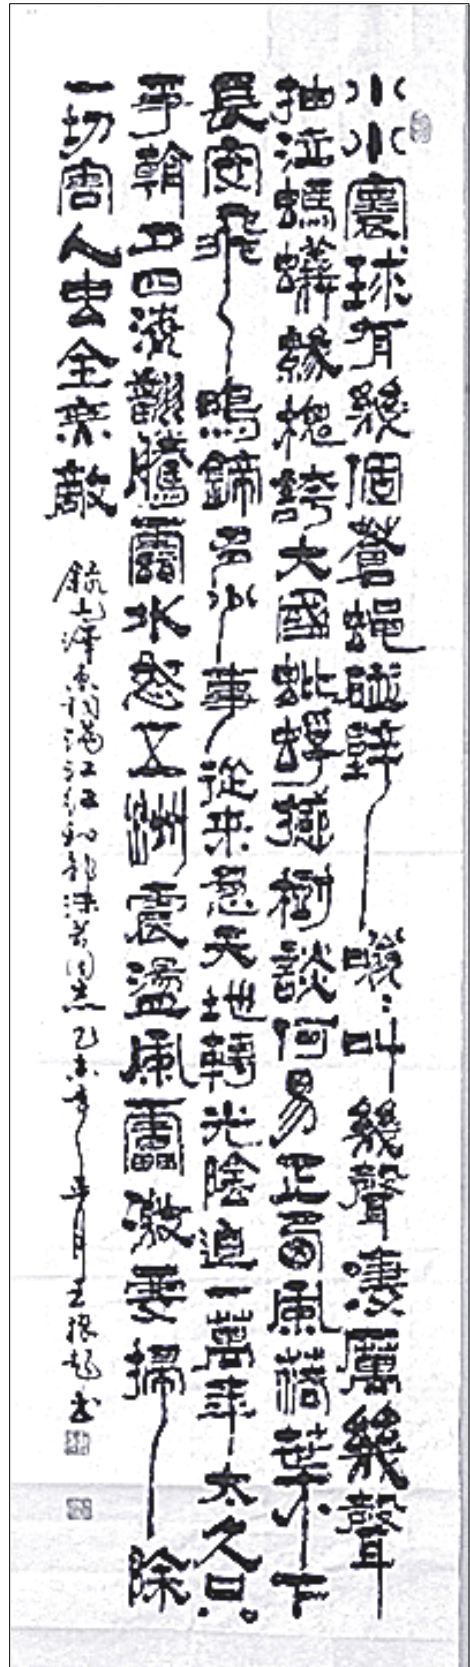 小小寰球有幾個蒼蠅碰壁嗡〻叫幾聲淒厲幾聲
抽泣螞蟻緣槐誇大國蚍蜉撼樹談何易正西風落葉下
長安飛鳴鏑多少事從來急天地轉光陰迫一萬年太久只
爭朝夕四海翻騰雲水怒五洲震盪風雷激要掃除
一切害人虫全無敵
錄毛澤東詞滿江紅和郭沫若同志乙未年 月王根起書